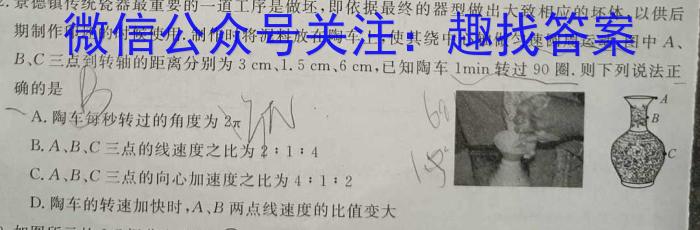 2.景德镇传统瓷器最重要的一道工序是做坯,即依据最终的器型做出大致相应的坯体,以供后
微信公众号关注：趣找答案
期制作
B、C三点到转轴的距离分别为3 cm、1.5 cm、6 cm,已知陶车1min转过90圈.则下列说法正
确的是
A.陶车每秒转过的角度为2π
B.A、B、C三点的线速度之比为2∶1∶4
C.A、B、C三点的向心加速度之比为4∶1∶2
D.陶车的转速加快时,A、B两点线速度的比值变大
A
B
C
B